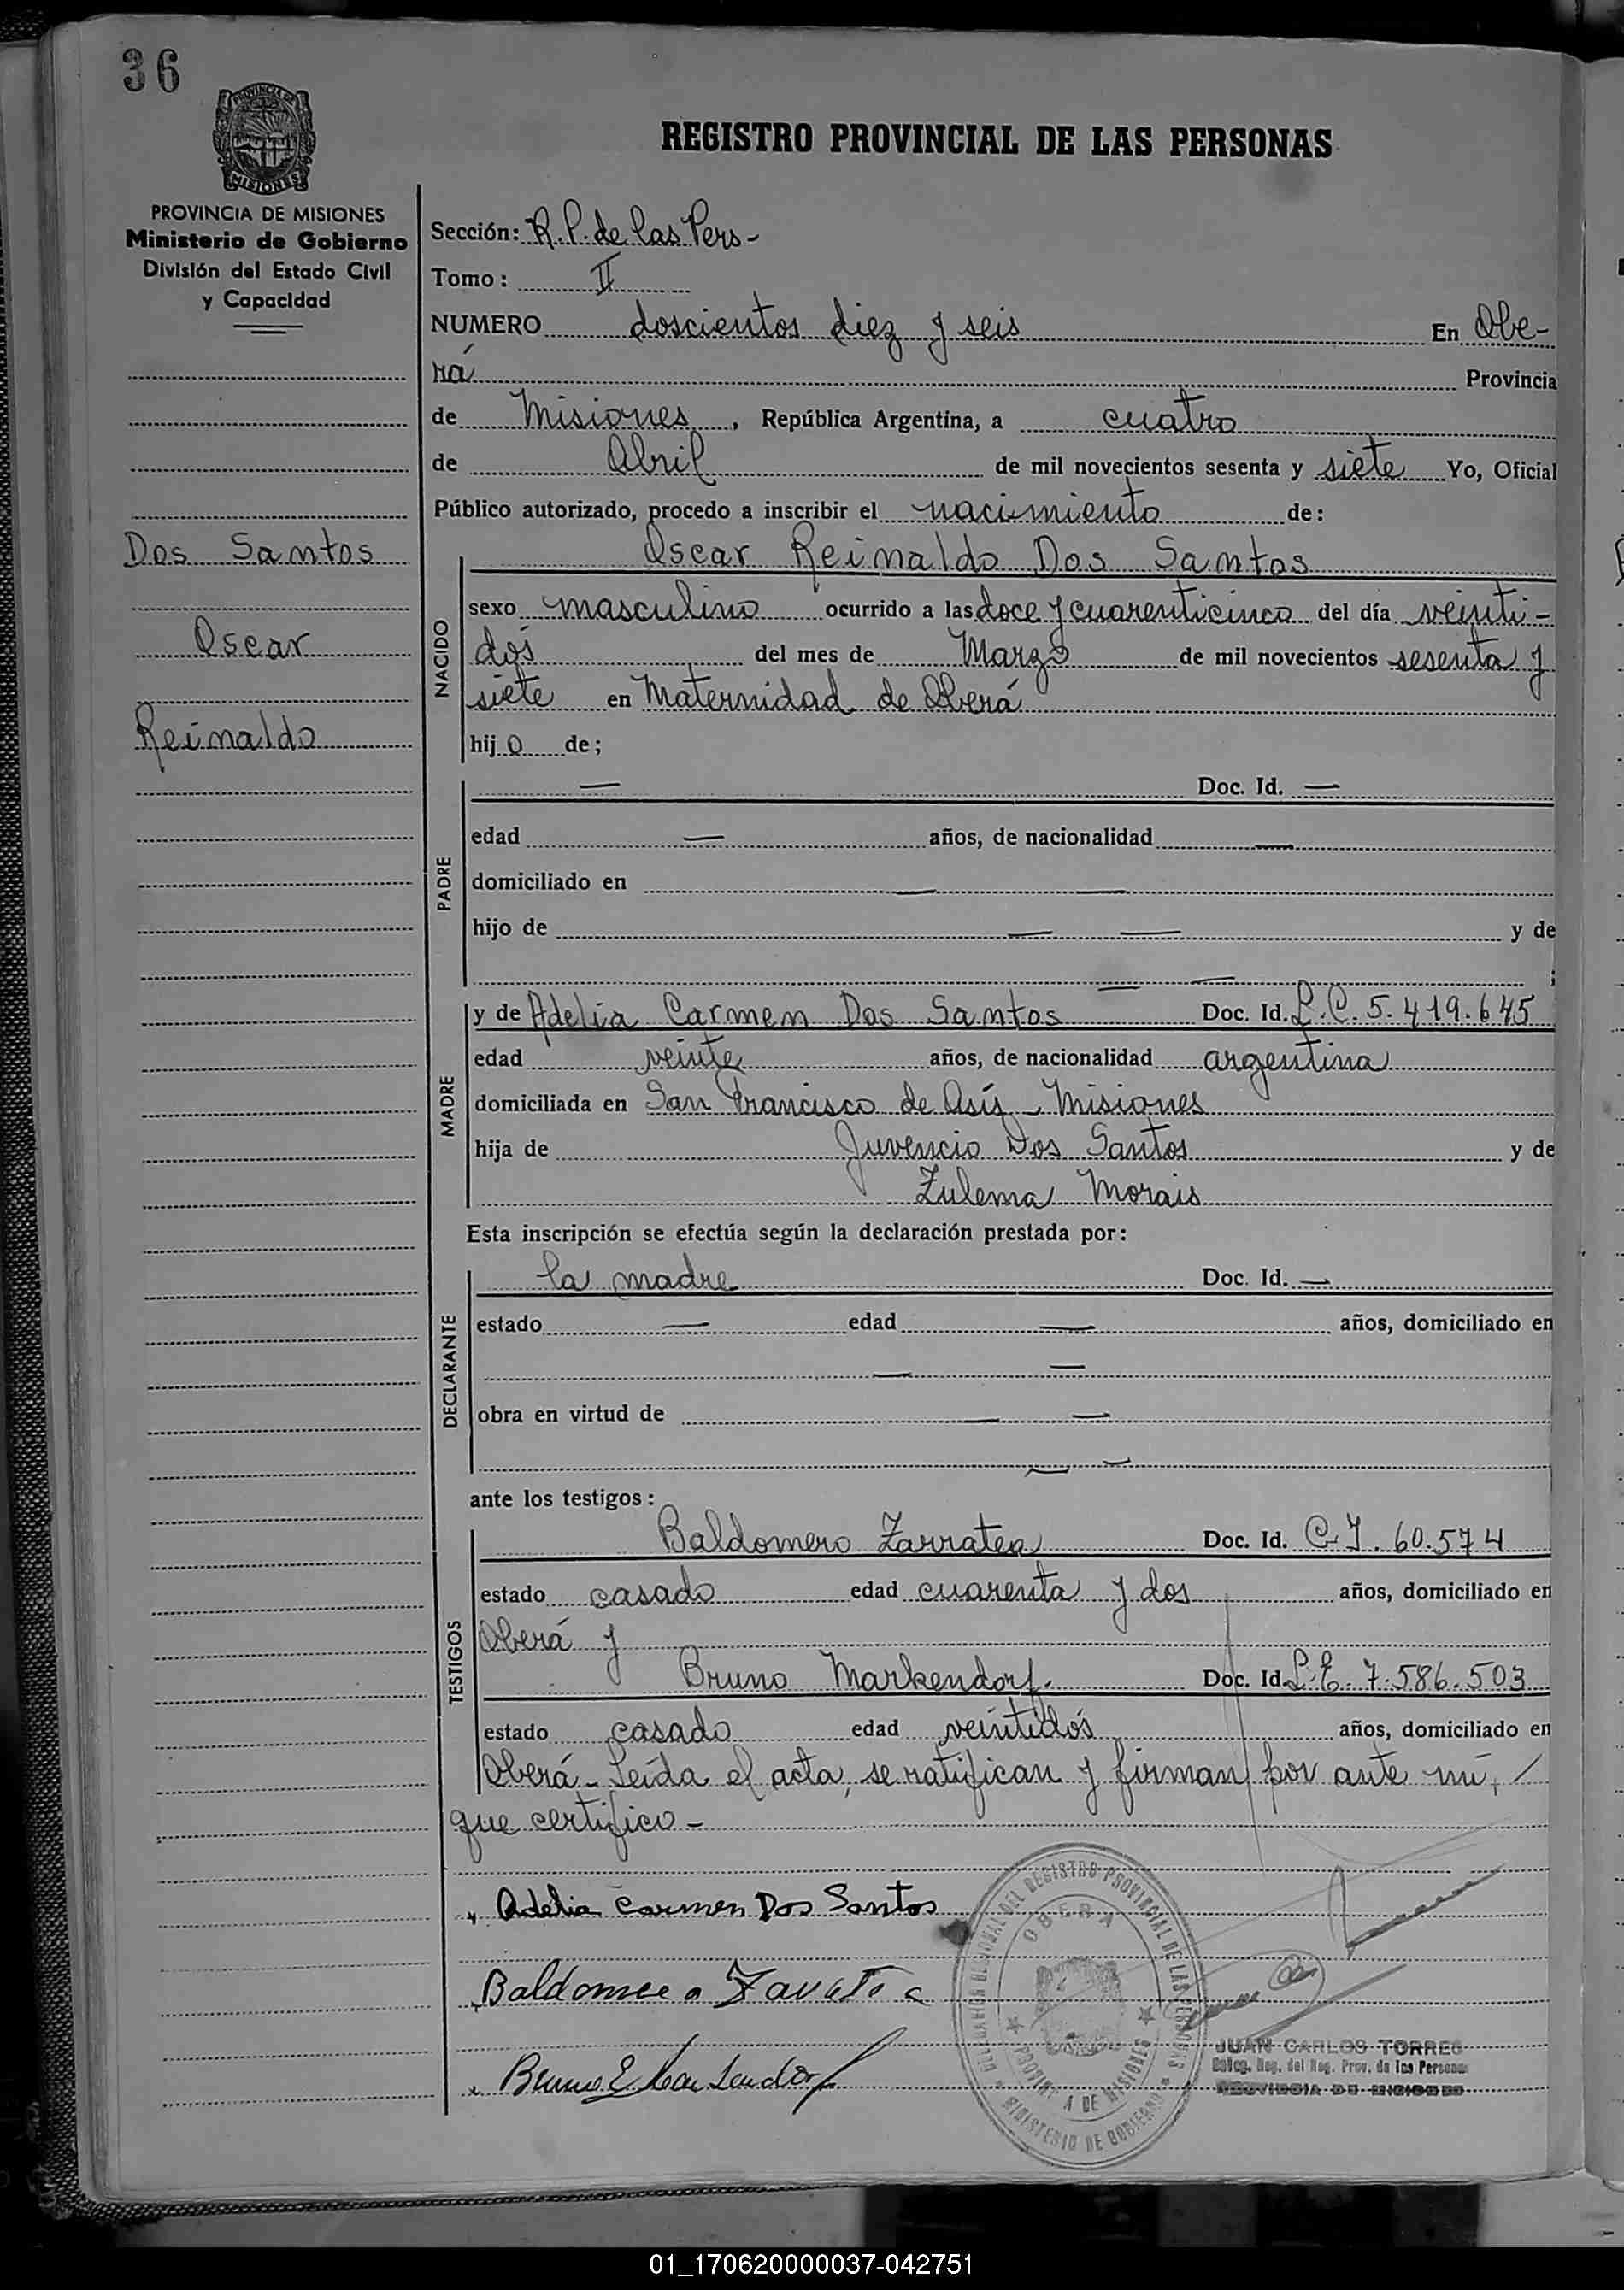 36
PROVINCIA DE
MISIONES
PROVINCIA DE MISIONES
Ministerio de Gobierno
División del Estado Civil
y Capacidad
Dos Santos
Oscar
Reinaldo
REGISTRO PROVINCIAL DE LAS PERSONAS
Sección: R.P. de las Pers-
Tomo: II
NUMERO doscientos diez y seis En Obe-
rá Provincia
de Misiones, República Argentina, a cuatro
de Abril de mil novecientos sesenta y siete Yo, Oficial
Público autorizado, procedo a inscribir el nacimiento de:
NACIDO
Oscar Reinaldo Dos Santos
sexo masculino ocurrido a las doce y cuarenticinco del día veinti-
dós del mes de Marzo de mil novecientos sesenta y
siete en Maternidad de Oberá
hijo de;
PADRE
— Doc. Id. —
edad — años, de nacionalidad —
domiciliado en — —
hijo de — — y de
— — ;
MADRE
y de Adelia Carmen Dos Santos Doc. Id. L.C. 5.419.645
edad veinte años, de nacionalidad argentina
domiciliada en San Francisco de Asís - Misiones
hija de Juvencio Dos Santos y de
Zulema Morais
Esta inscripción se efectúa según la declaración prestada por:
DECLARANTE
la madre Doc. Id. —
estado — edad — años, domiciliado en
— —
obra en virtud de — —
— —
ante los testigos:
TESTIGOS
Baldomero Zarratea Doc. Id. C.I. 60.574
estado casado edad cuarenta y dos años, domiciliado en
Oberá y
Bruno Markendorf. Doc. Id. L.E. 7.586.503
estado casado edad veintidós años, domiciliado en
Oberá - Leída el acta, se ratifican y firman por ante mí,
que certifico -
Adelia Carmen Dos Santos
DELEGACIÓN REGIONAL DEL REGISTRO PROVINCIAL DE LAS PERSONAS
OBERA
PROVINCIA DE MISIONES
MINISTERIO DE GOBIERNO
JUAN CARLOS TORRES
Deleg. Reg. del Reg. Prov. de las Personas
PROVINCIA DE MISIONES
01_170620000037-042751